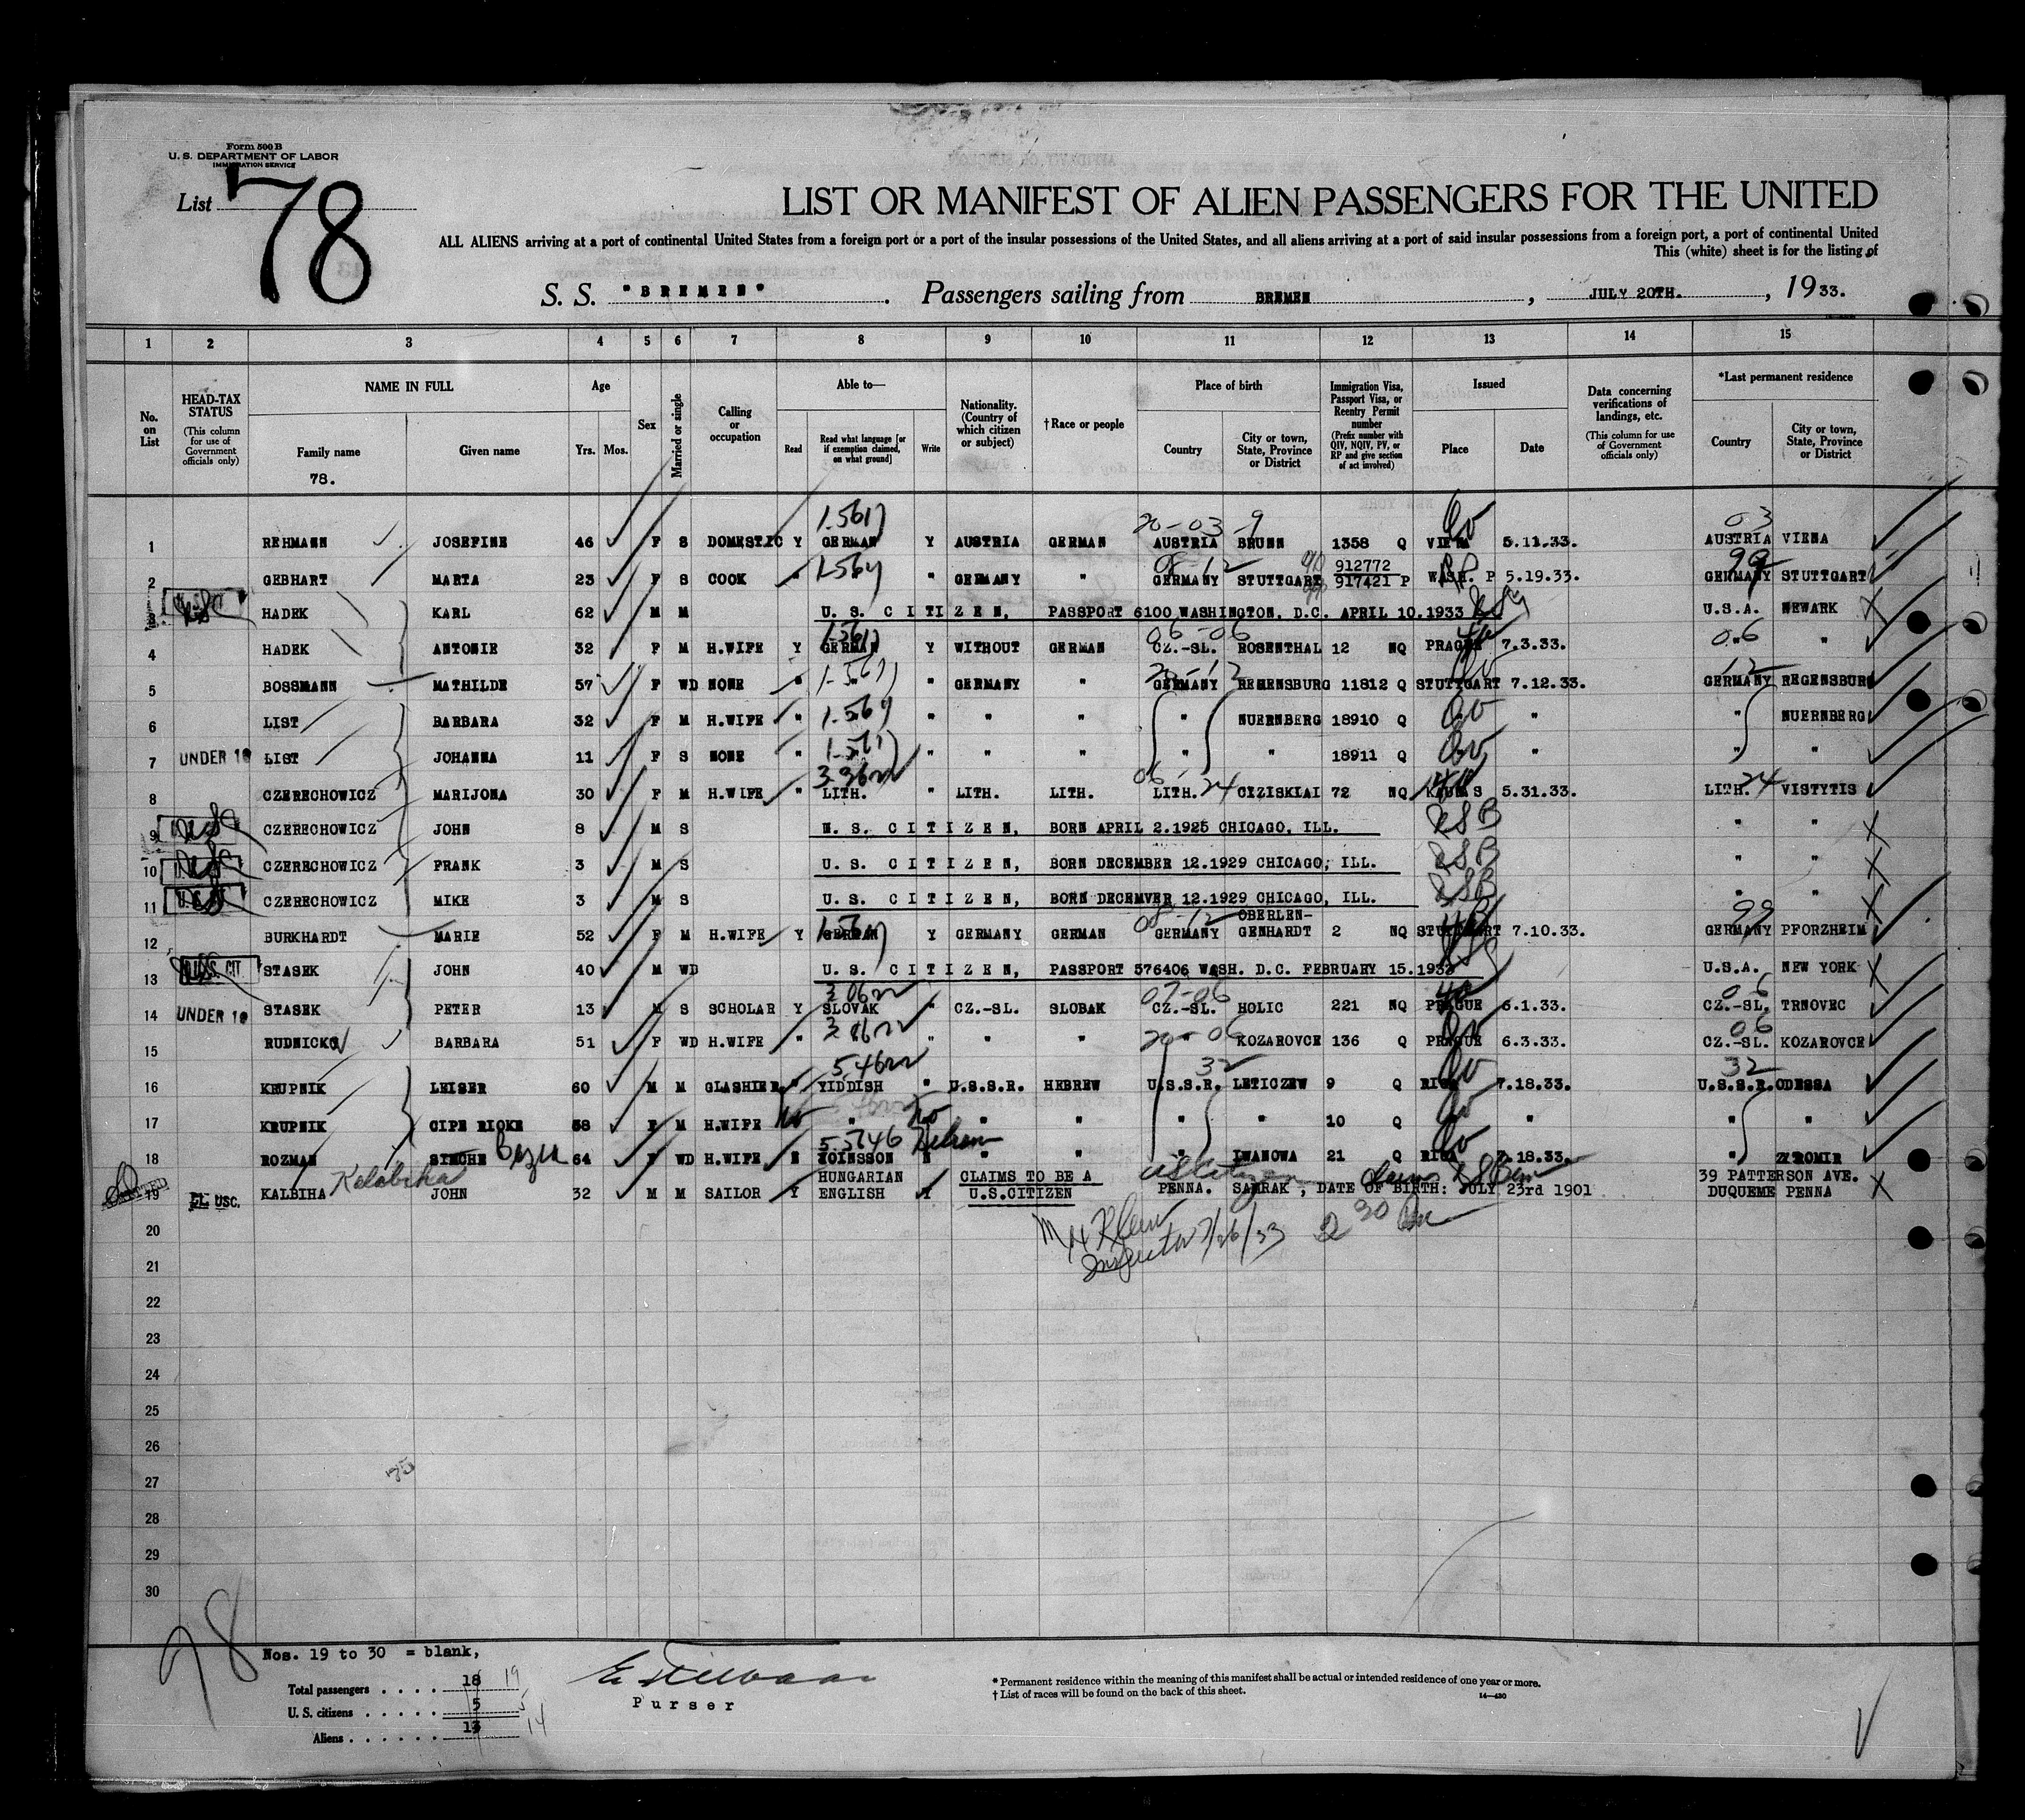 Form 500 B
U. S. DEPARTMENT OF LABOR
IMMIGRATION SERVICE
List 78
LIST OR MANIFEST OF ALIEN PASSENGERS FOR THE UNITED
ALL ALIENS arriving at a port of continental United States from a foreign port or a port of the insular possessions of the United States, and all aliens arriving at a port of said insular possessions from a foreign port, a port of continental United
This (white) sheet is for the listing of
S. S. "BREMEN". Passengers sailing from BREMEN, JULY 20TH., 1933.
1 2 3 4 5 6 7 8 9 10 11 12 13 14 15
No. on List
HEAD-TAX STATUS (This column for use of Government officials only)
NAME IN FULL
Family name
78.
Given name
Age
Yrs. Mos.
Sex
Married or single
Calling or occupation
Able to—
Read
Read what language [or if exemption claimed, on what ground]
Write
Nationality. (Country of which citizen or subject)
†Race or people
Place of birth
Country
City or town, State, Province or District
Immigration Visa, Passport Visa, or Reentry Permit number (Prefix number with QIV, NQIV, PV, or RP and give section of act involved)
Issued
Place
Date
Data concerning verifications of landings, etc. (This column for use of Government officials only)
*Last permanent residence
Country
City or town, State, Province or District
1 REHMANN JOSEFINE 46 F S DOMESTIC Y GERMAN Y AUSTRIA GERMAN AUSTRIA BRUNN 1358 Q VIENA 5.11.33. AUSTRIA VIENA
2 GEBHART MARTA 23 F S COOK " " GERMANY " GERMANY STUTTGART 912772 917421 P WASH. P 5.19.33. GERMANY STUTTGART
3 HADEK KARL 62 M M U. S. CITIZEN, PASSPORT 6100 WASHINGTON, D.C. APRIL 10.1933 U.S.A. NEWARK
4 HADEK ANTONIE 32 F M H.WIFE Y GERMAN Y WITHOUT GERMAN CZ.-SL. ROSENTHAL 12 NQ PRAGUE 7.3.33. " "
5 BOSSMANN MATHILDE 57 F WD NONE " " " GERMANY " GERMANY REGENSBURG 11812 Q STUTTGART 7.12.33. GERMANY REGENSBURG
6 LIST BARBARA 32 F M H.WIFE " " " " " NUERNBERG 18910 Q " " NUERNBERG
7 UNDER 16 LIST JOHANNA 11 F S NONE " " " " " " 18911 Q " " "
8 CZERECHOWICZ MARIJONA 30 F M H.WIFE " LITH. " LITH. LITH. LITH. CIZISKIAI 72 NQ KAUNAS 5.31.33. LITH. VISTYTIS
9 CZERECHOWICZ JOHN 8 M S U. S. CITIZEN, BORN APRIL 2.1925 CHICAGO, ILL. " "
10 CZERECHOWICZ FRANK 3 M S U. S. CITIZEN, BORN DECEMBER 12.1929 CHICAGO, ILL. " "
11 CZERECHOWICZ MIKE 3 M S U. S. CITIZEN, BORN DECEMVER 12.1929 CHICAGO, ILL. " "
12 BURKHARDT MARIE 52 F M H.WIFE Y GERMAN Y GERMANY GERMAN GERMANY OBERLEN-GENHARDT 2 NQ STUTTGART 7.10.33. GERMANY PFORZHEIM
13 U.S. CIT. STASEK JOHN 40 M WD U. S. CITIZEN, PASSPORT 576406 WASH. D.C. FEBRUARY 15.1933 U.S.A. NEW YORK
14 UNDER 16 STASEK PETER 13 M S SCHOLAR Y SLOVAK " CZ.-SL. SLOBAK CZ.-SL. HOLIC 221 NQ PRAGUE 6.1.33. CZ.-SL. TRNOVEC
15 RUDNICKO BARBARA 51 F WD H.WIFE " " " " " KOZAROVCE 136 Q PRAGUE 6.3.33. CZ.-SL. KOZAROVCE
16 KRUPNIK LEISER 60 M M GLASHIER " YIDDISH " U.S.S.R. HEBREW U.S.S.R. LETICZEW 9 Q RIGA 7.18.33. U.S.S.R. ODESSA
17 KRUPNIK CIPE RIOKE 58 F M H.WIFE No " No " " " " 10 Q " " " "
18 ROZMAN SIMCHE 64 F WD H.WIFE " " " IWANOWA 21 Q RIGA 7.18.33. " ZYROMIR
19 USC. KALBIHA Kelabiha JOHN 32 M M SAILOR Y HUNGARIAN ENGLISH Y CLAIMS TO BE A U.S.CITIZEN PENNA. SAHRAK, DATE OF BIRTH: JULY 23rd 1901 39 PATTERSON AVE. DUQUEME PENNA
20
Inspector 7/26/33
21
22
23
24
25
26
27
28
29
30
78
Nos. 19 to 30 = blank,
Total passengers . . . . 18 19
U. S. citizens . . . . . 5 5
Aliens . . . . . . 13 14
Purser
* Permanent residence within the meaning of this manifest shall be actual or intended residence of one year or more.
† List of races will be found on the back of this sheet.
14—430